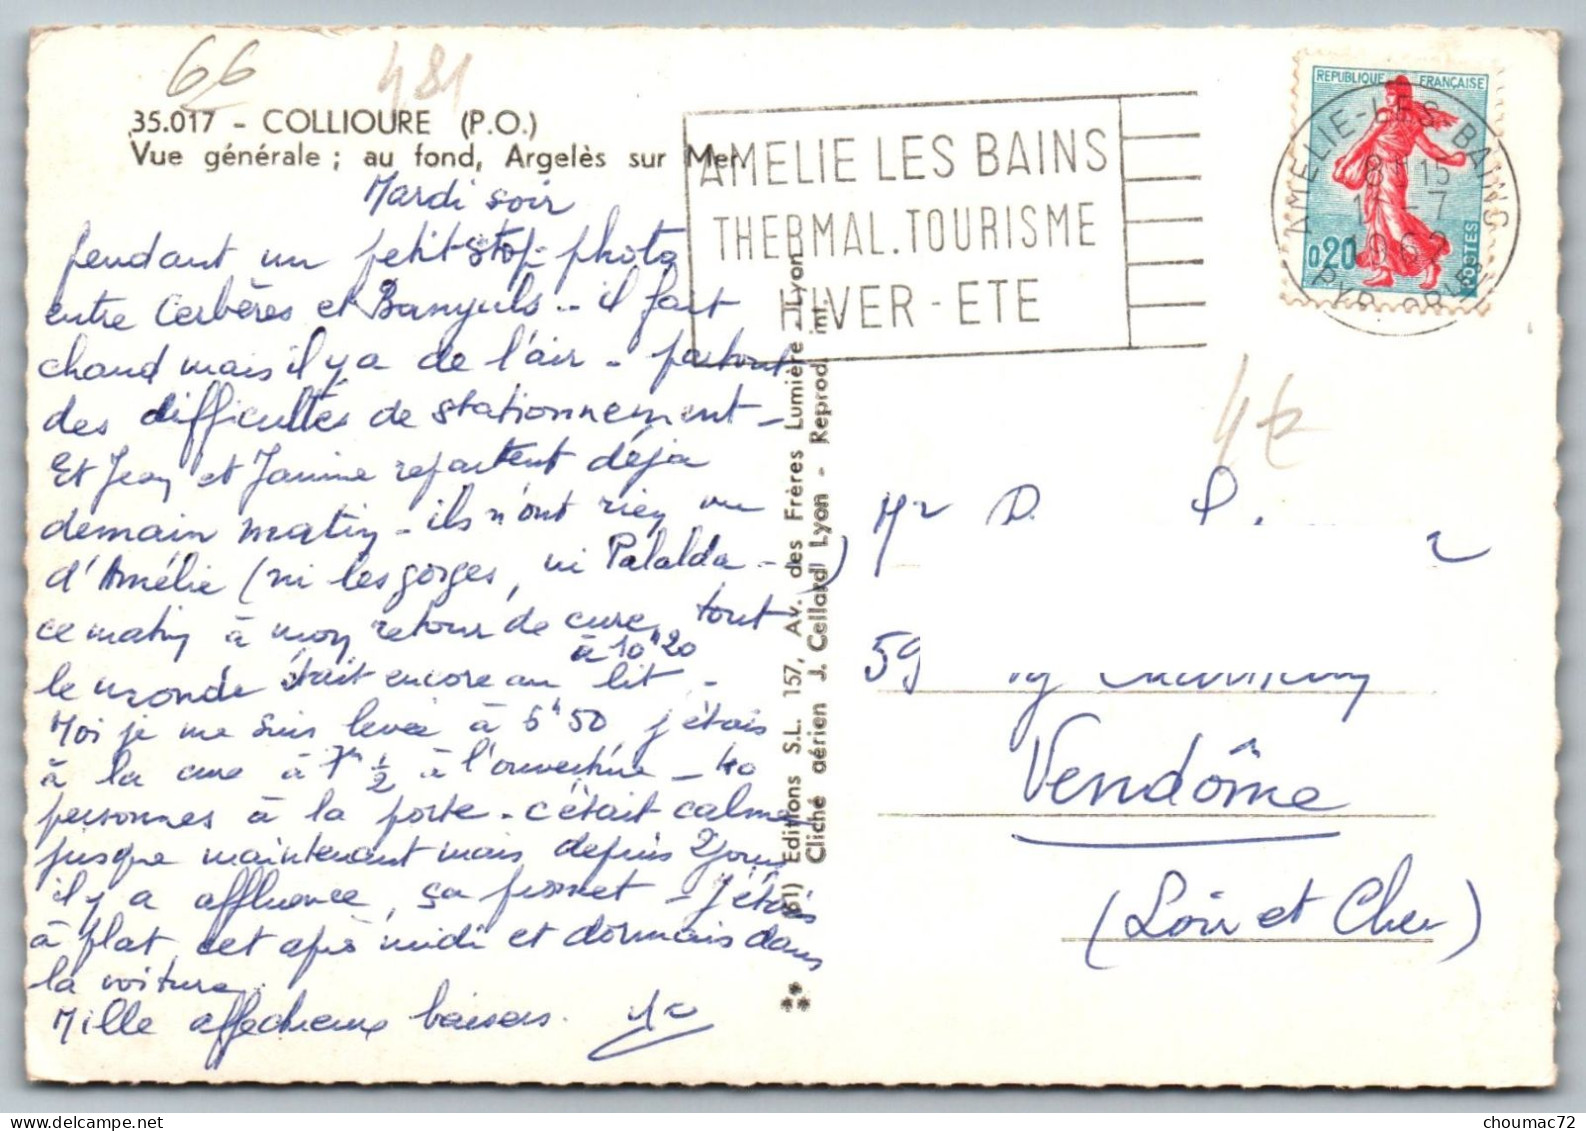 66
481
35.017 - COLLIOURE (P.O.)
Vue générale ; au fond, Argelès sur Mer
Mardi soir
pendant un petit stop-photo
entre Cerbères et Banyuls - il fait
chaud mais il y a de l'air - partout
des difficultés de stationnement -
Et Jean et Janine repartent déjà
demain matin - ils n'ont rien vu
d'Amélie (ni les gorges, ni Palalda - )
ce matin à mon retour de cure tout
à 10h20
le monde était encore au lit -
Moi je me suis levée à 6h50 j'étais
à la cure à 7h 1/2 à l'ouverture - 40
personnes à la porte - c'était calme
jusque maintenant mais depuis 2 jours
il y a affluence, ça promet - J'étais
à plat, cet après midi et dormais dans
la voiture.
Mille affectueux baisers.
AMELIE LES BAINS
THERMAL.TOURISME
HIVER - ETE
REPUBLIQUE FRANÇAISE
0,20
POSTES
AMELIE-LES-BAINS
8H15
7
1962
PYR. ORLES
(61) Editions S.L. 157, Av. des Frères Lumière - Lyon
Cliché aérien J. Cellard Lyon - Reprod. int.
Mr D. P.
59
Vendôme
(Loir et Cher)
choumac72